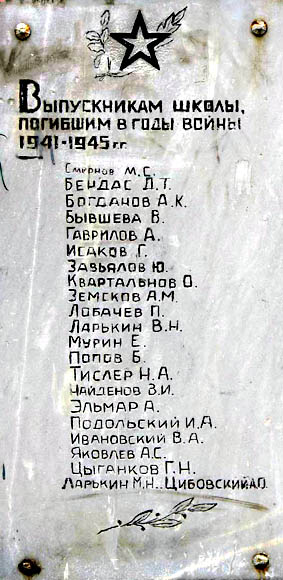 Выпускникам школы,
погибшим в годы войны
1941-1945 г.г.
Смирнов М.С.
Бендас Д.Т.
Богданов А.К.
Бывшева В.
Гаврилов Д.
Исаков Г.
Завьялов Ю.
Квартальнов О.
Земсков А.М.
Лобачев П.
Ларькин В.Н.
Мурин Е.
Попов Б.
Тислер Н.А.
Найденов В.И.
Эльмар А.
Подольский И.А.
Ивановский В.А.
Яковлев А.С.
Цыганков Г.Н.
Ларькин М.Н. Цибовский А.О.